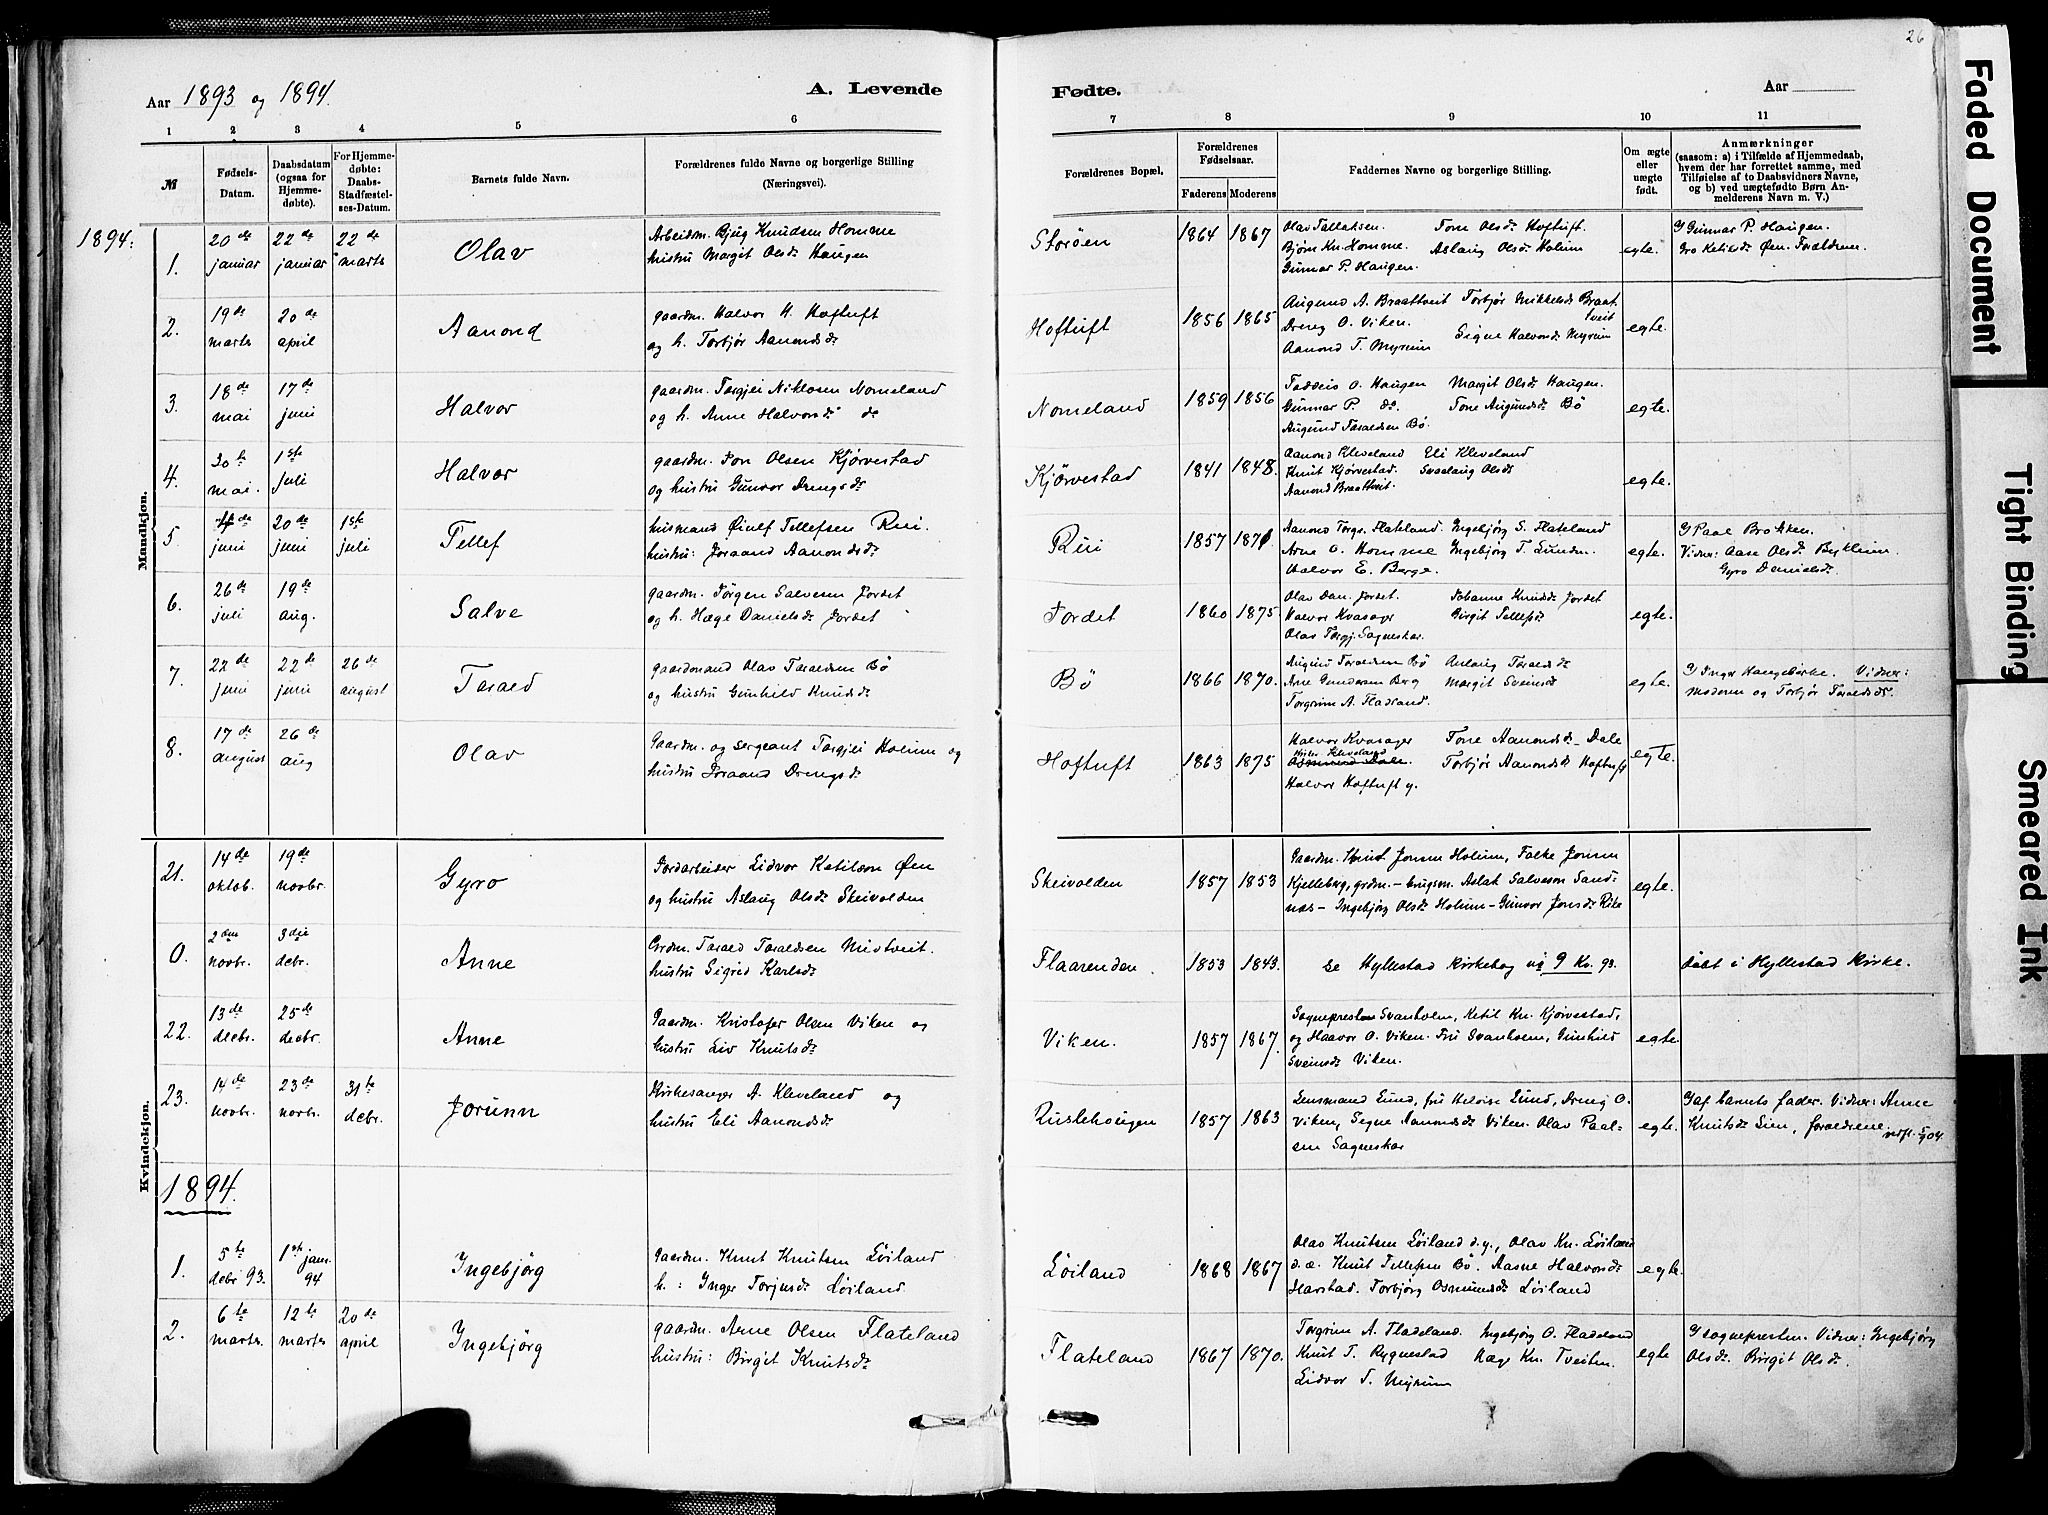 26
Aar 1893 og 1894.
A. Levende
Fødte.
Aar
1 2 3 4 5 6 7 8 9 10 11
№
Fødsels-
Datum.
Daabsdatum
(ogsaa for
Hjemme-
døbte).
For Hjemme-
døbte:
Daabs-
Stadfæstel-
ses-Datum.
Barnets fulde Navn.
Forældrenes fulde Navne og borgerlige Stilling
(Næringsvei).
Forældrenes Bopæl.
Forældrenes
Fødselsaar.
Faderens Moderens
Faddernes Navne og borgerlige Stilling.
Om ægte
eller
uægte
født.
Anmærkninger
(saasom: a) i Tilfælde af Hjemmedaab,
hvem der har forrettet samme, med
Tilføielse af to Daabsvidners Navne,
og b) ved uægtefødte Børn An-
melderens Navn m. V.)
Mandkjøn.
1894:
1.
20 de
januar
22 de
januar
22 de
marts
Olav
Arbeidsm. Bjug Knudsen Homme
hustru Margit Olsdr Haugen
Storøen
1864 1867
Olav Tallaksen. Tone Olsdr Hoftuft
Bjørn Kn. Homme. Aslaug Olsdr Holum
Gunnar P. Haugen.
egte.
Gunnar P. Haugen.
Gro Ketilsdr Øen. Forældrene.
2.
19 de
marts
20 de
april
Aanond
gaardm. Halvor H. Hoftuft
og h. Torbjør Aanondsdr
Hoftuft
1856 1865
Augund A. Braattveit Torbjør Mikkelsdr Braat-
tveit
Dreng O. Viken.
Aanond T. Myrum Signe Halvorsdr Myrum
egte.
3.
18 de
mai
17 de
juni
Halvor
gaardm. Torgjei Niklosen Nomeland
og h. Anne Halvorsdr do
Nomeland
1859 1856
Taddeis O. Haugen Margit Olsdr Haugen.
Gunnar P. do. Tone Augundsdr Bø
Augund Taraldsen Bø.
egte.
4.
30 te
mai.
1 ste
juli
Halvor
gaardm. Jon Olsen Kjørvestad
og hustru Gunvor Drengsdr
Kjørvestad
1841 1848.
Aanond Kleveland Eli Kleveland
Knut Kjørvestad. Svaelaug Olsdr
Aanond Braattveit.
egte.
5.
de
juni
20 de
juni
1 ste
juli
Tellef
husmand Øiulf Tellefsen Rui.
hustru: Joraand Aanondsdr
Rui
1857 1871.
Aanond Torgs. Flateland. Ingebjørg S. Flateland
Arne O. Homme Ingebjørg T. Lunden.
Halvor E. Berge.
egte.
Paal Brokken.
Vidner: Aase Olsdr Byklum.
Gyro Danielsdr.
6.
26 de
juli
19 de
aug.
Salve
gaardm. Jørgen Salvesen Jordet
og h. Hæge Danielsdr Jordet
Jordet
1860 1875
Olav Dan. Jordet. Johanne Knudsdr Jordet
Halvor Kvasager Birgit Tellefsdr
Olav Torgj. Sagneskar.
egte.
7.
22 de
juni
22 de
juni
26 de
august
Tarald
gaardmand Olav Taraldsen Bø
og hustru Gunhild Knudsdr
Bø
1866 1870.
Augund Taraldsen Bø Aslaug Taraldsdr
Arne Gundersen Berg Margit Sveinsdr
Torgrim A. Fladeland.
egte.
Inger Haugebirke. Vidner:
Moderen og Torbjør Taraldsdr.
8.
17 de
august
26 de
aug
Olav
Gaardm. og sergeant Torgjei Holum og
hustru Joraand Drengsdr
Hoftuft
1863 1875
Halvor Kvasager Tone Aanondsdr Dale
Kleveland
Osmund Dale. Torbjør Aanondsdr Hoftuft
Halvor Hoftuft y.
egte.
Kvindekjøn.
21.
14 de
oktob.
19 de
novbr.
Gyro
Jordarbeider Lidvor Ketilsøn Øen
og hustru Aslaug Olsdr Skeivolden
Skeivolden
1857 1853
Gaardm. Knut Jonsen Holum, Folke Jonsen
Kjelleberg, grdm. - brugsm. Aslak Salveson Sand-
næs - Ingebjørg Olsdr Holum - Gunvor Jonsdr Rike
egte.
0.
2 den
novbr.
3 die
debr.
Anne
Grdm. Tarald Taraldsen Mivtveit.
hustru Sigrid Karlsdr
Flaarenden.
1853 1843.
se Hyllestad kirkebog no 9 Kv. 93.
Døbt i Hyllestad Kirke.
22.
13 de
decbr.
25 de
decbr.
Anne
Gaardm. Kristofer Olsen Viken og
hustru Liv Knutsdr
Viken.
1857 1867.
Sognepresten Svanholm, Ketil Kn. Kjørvestad,
og Haavor O. Viken. Fru Svanholm, Gunhild
Sveinsdr Viken.
egte.
23.
14 de
novbr.
23 de
novbr.
31 te
decbr.
Jorunn
Kirkesanger A. Kleveland og
hustru Eli Aanondsdr
Rustehougen
1857 1863
Lensmand Lund, fru Heloise Lund, Dreng O.
Viken, Signe Aanondsdr Viken. Olav Paal-
sen Sagneskar
egte.
af barnets fader. Vidner: Anne
Knutsdr Lien, forældrene.
1894.
1.
5 te
debr 93.
1 ste jan.
94
Ingebjörg
gaardm. Knut Knutsen Løiland
h.: Inger Torjusdr Løiland.
Løiland
1868 1867
Olav Knutsen Løiland d.y., Olav Kn. Løiland
d.æ. Knut Tellefsen Bø. Aasne Halvorsdr
Harstad. Torbjørg Osmundsdr Løiland
egte.
2.
6 te
marts.
12 te
marts
20 de
april
Ingebjörg
gaardm. Arne Olsen Flateland
hustru: Birgit Knutsdr
Flateland
1867 1870.
Torgrim A. Fladeland. Ingebjørg O. Fladeland
Knut T. Rygnestad Hæge Kn. Tveiten
Lidvor T. Myrum
egte
sognepresten. Vidner: Ingebjørg
Olsdr. Birgit Olsdr.
Faded Document
Tight Binding
Smeared Ink